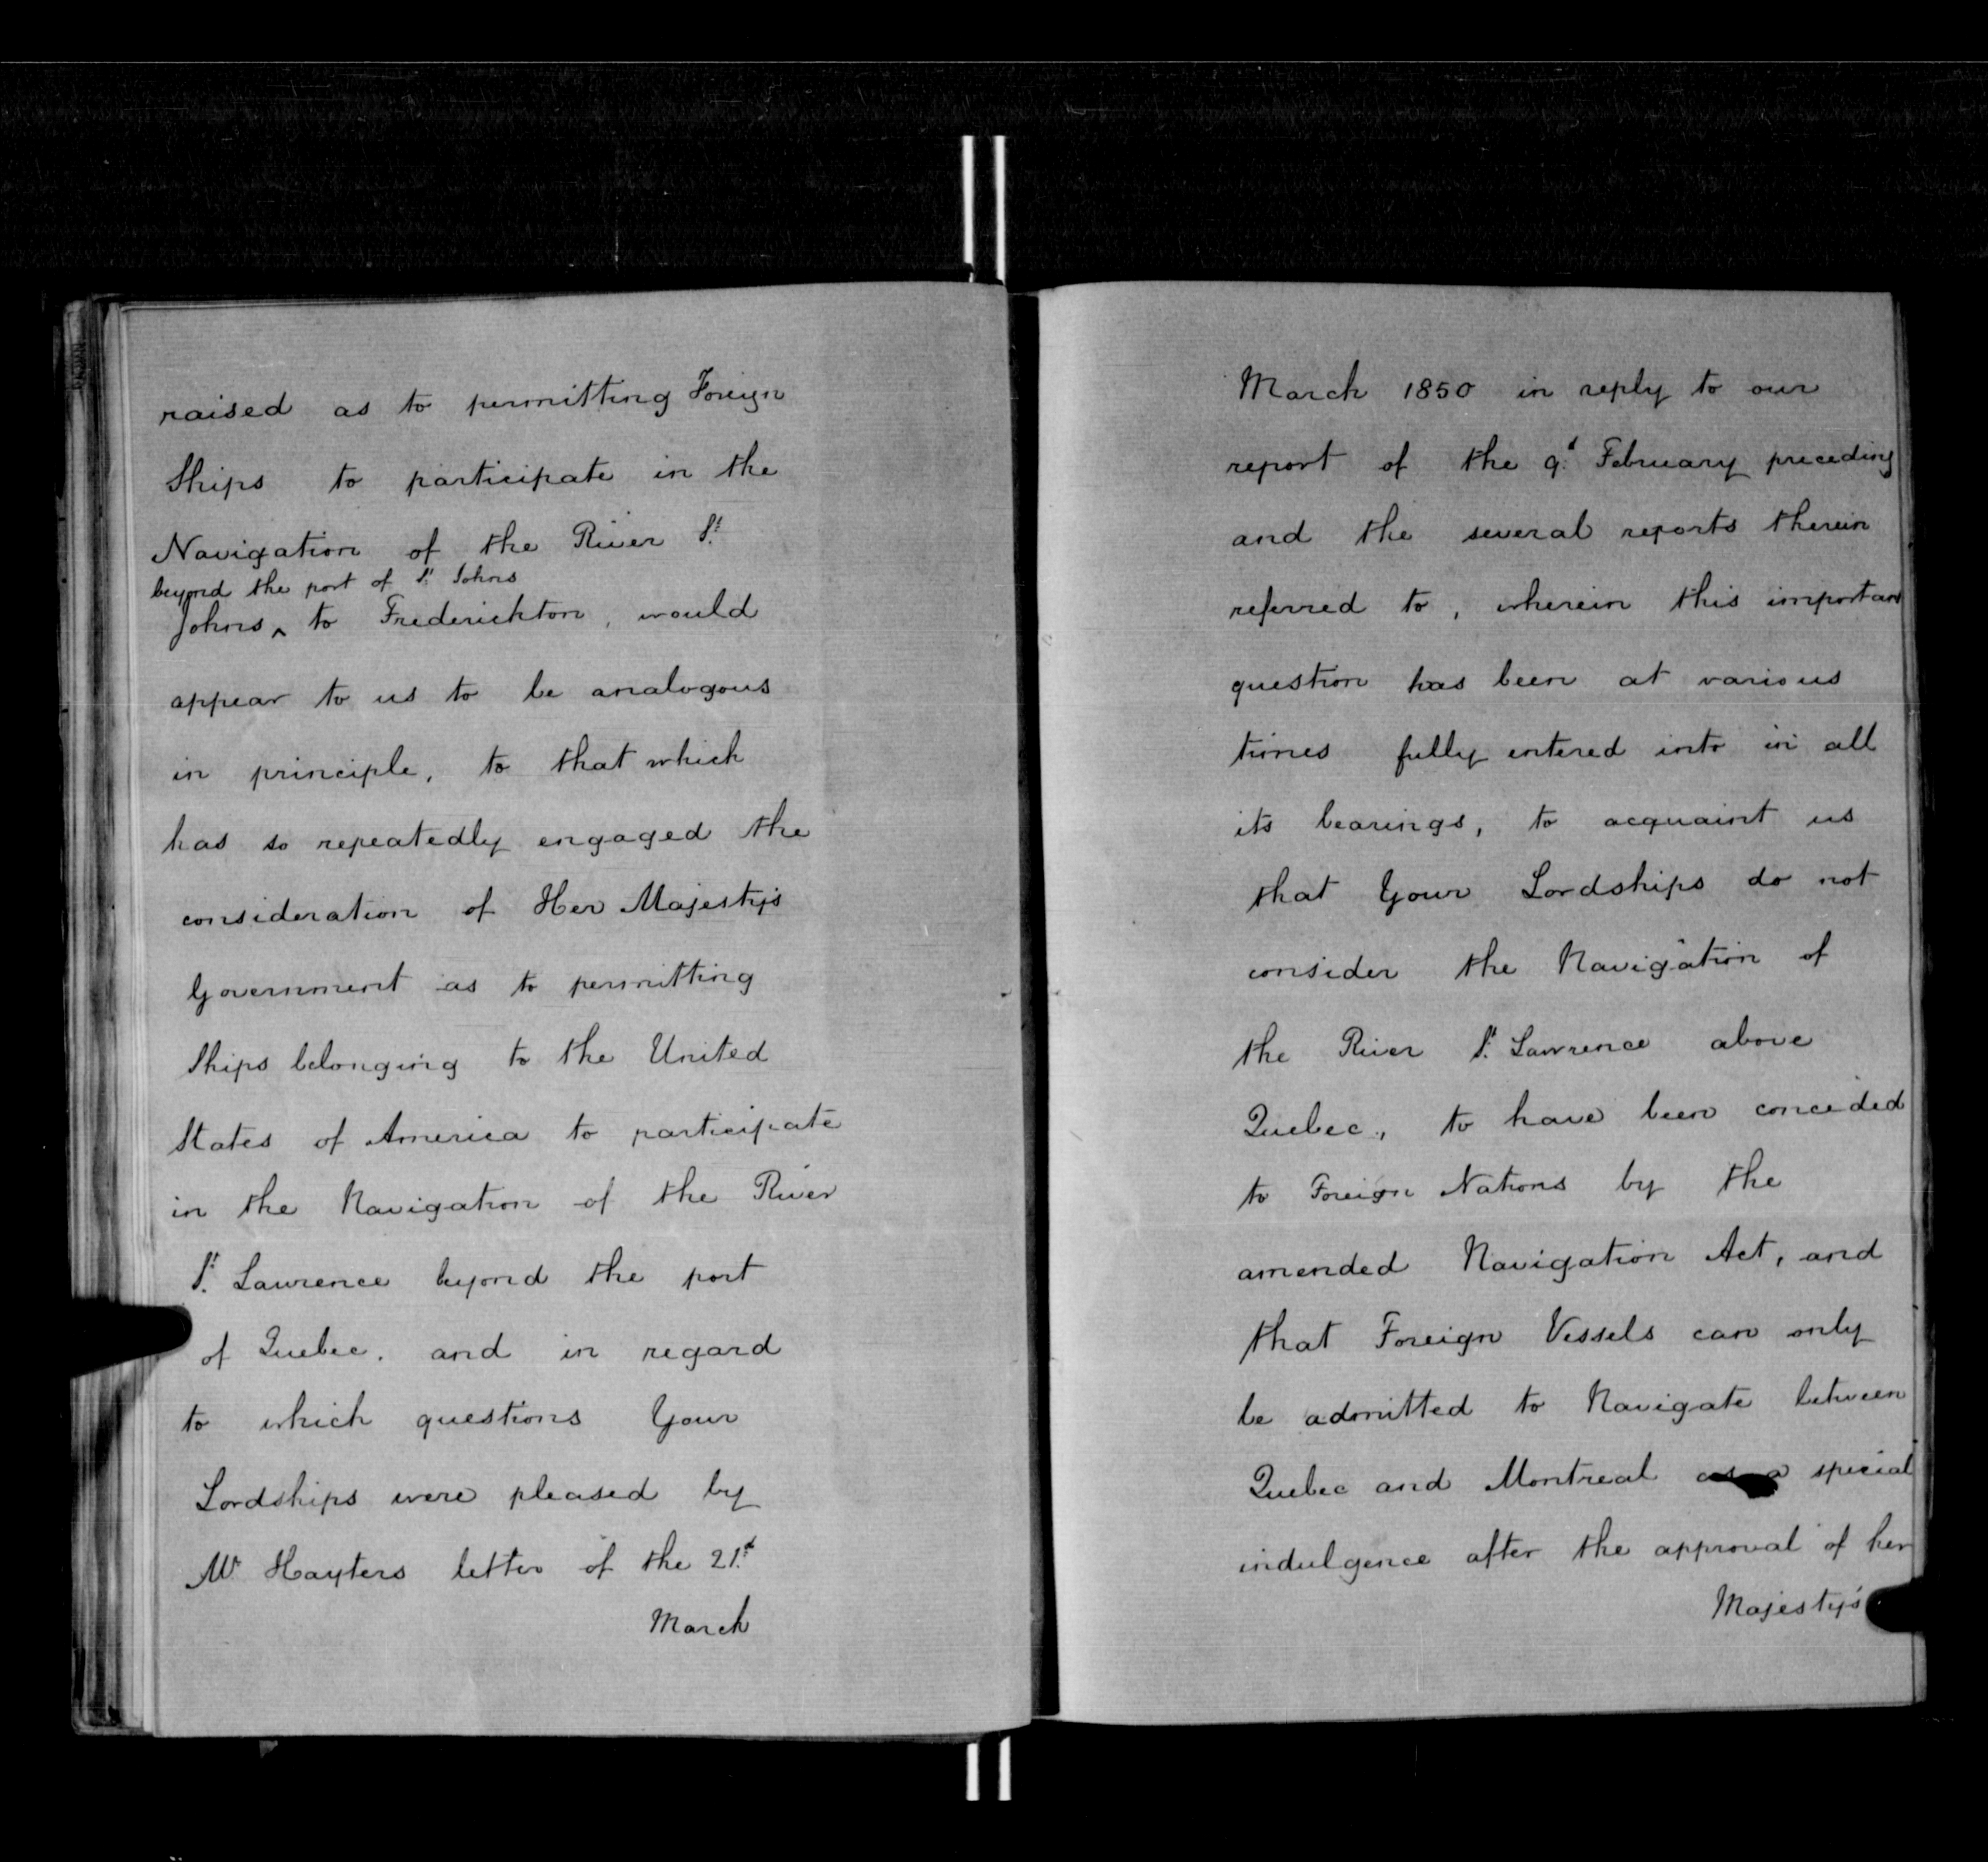 raised as to permitting Foreign
Ships to participate in the
Navigation of the River St.
beyond the port of St. Johns
Johns ^ to Frederickton, would
appear to us to be analogous
in principle, to that which
has so repeatedly engaged the
consideration of Her Majesty's
Government as to permitting
Ships belonging to the United
States of America to participate
in the Navigation of the River
St. Lawrence beyond the port
of Quebec. and in regard
to which questions Your
Lordships were pleased by
Mr Hayters letter of the 21st
March
March 1850 in reply to our
report of the 9th February preceding
and the several reports therein
referred to, wherein this important
question has been at various
times fully entered into in all
its bearings, to acquaint us
that Your Lordships do not
consider the Navigation of
the River St. Lawrence above
Quebec, to have been conceded
to Foreign Nations by the
amended Navigation Act, and
that Foreign Vessels can only
be admitted to Navigate between
Quebec and Montreal as a special
indulgence after the approval of her
Majesty's